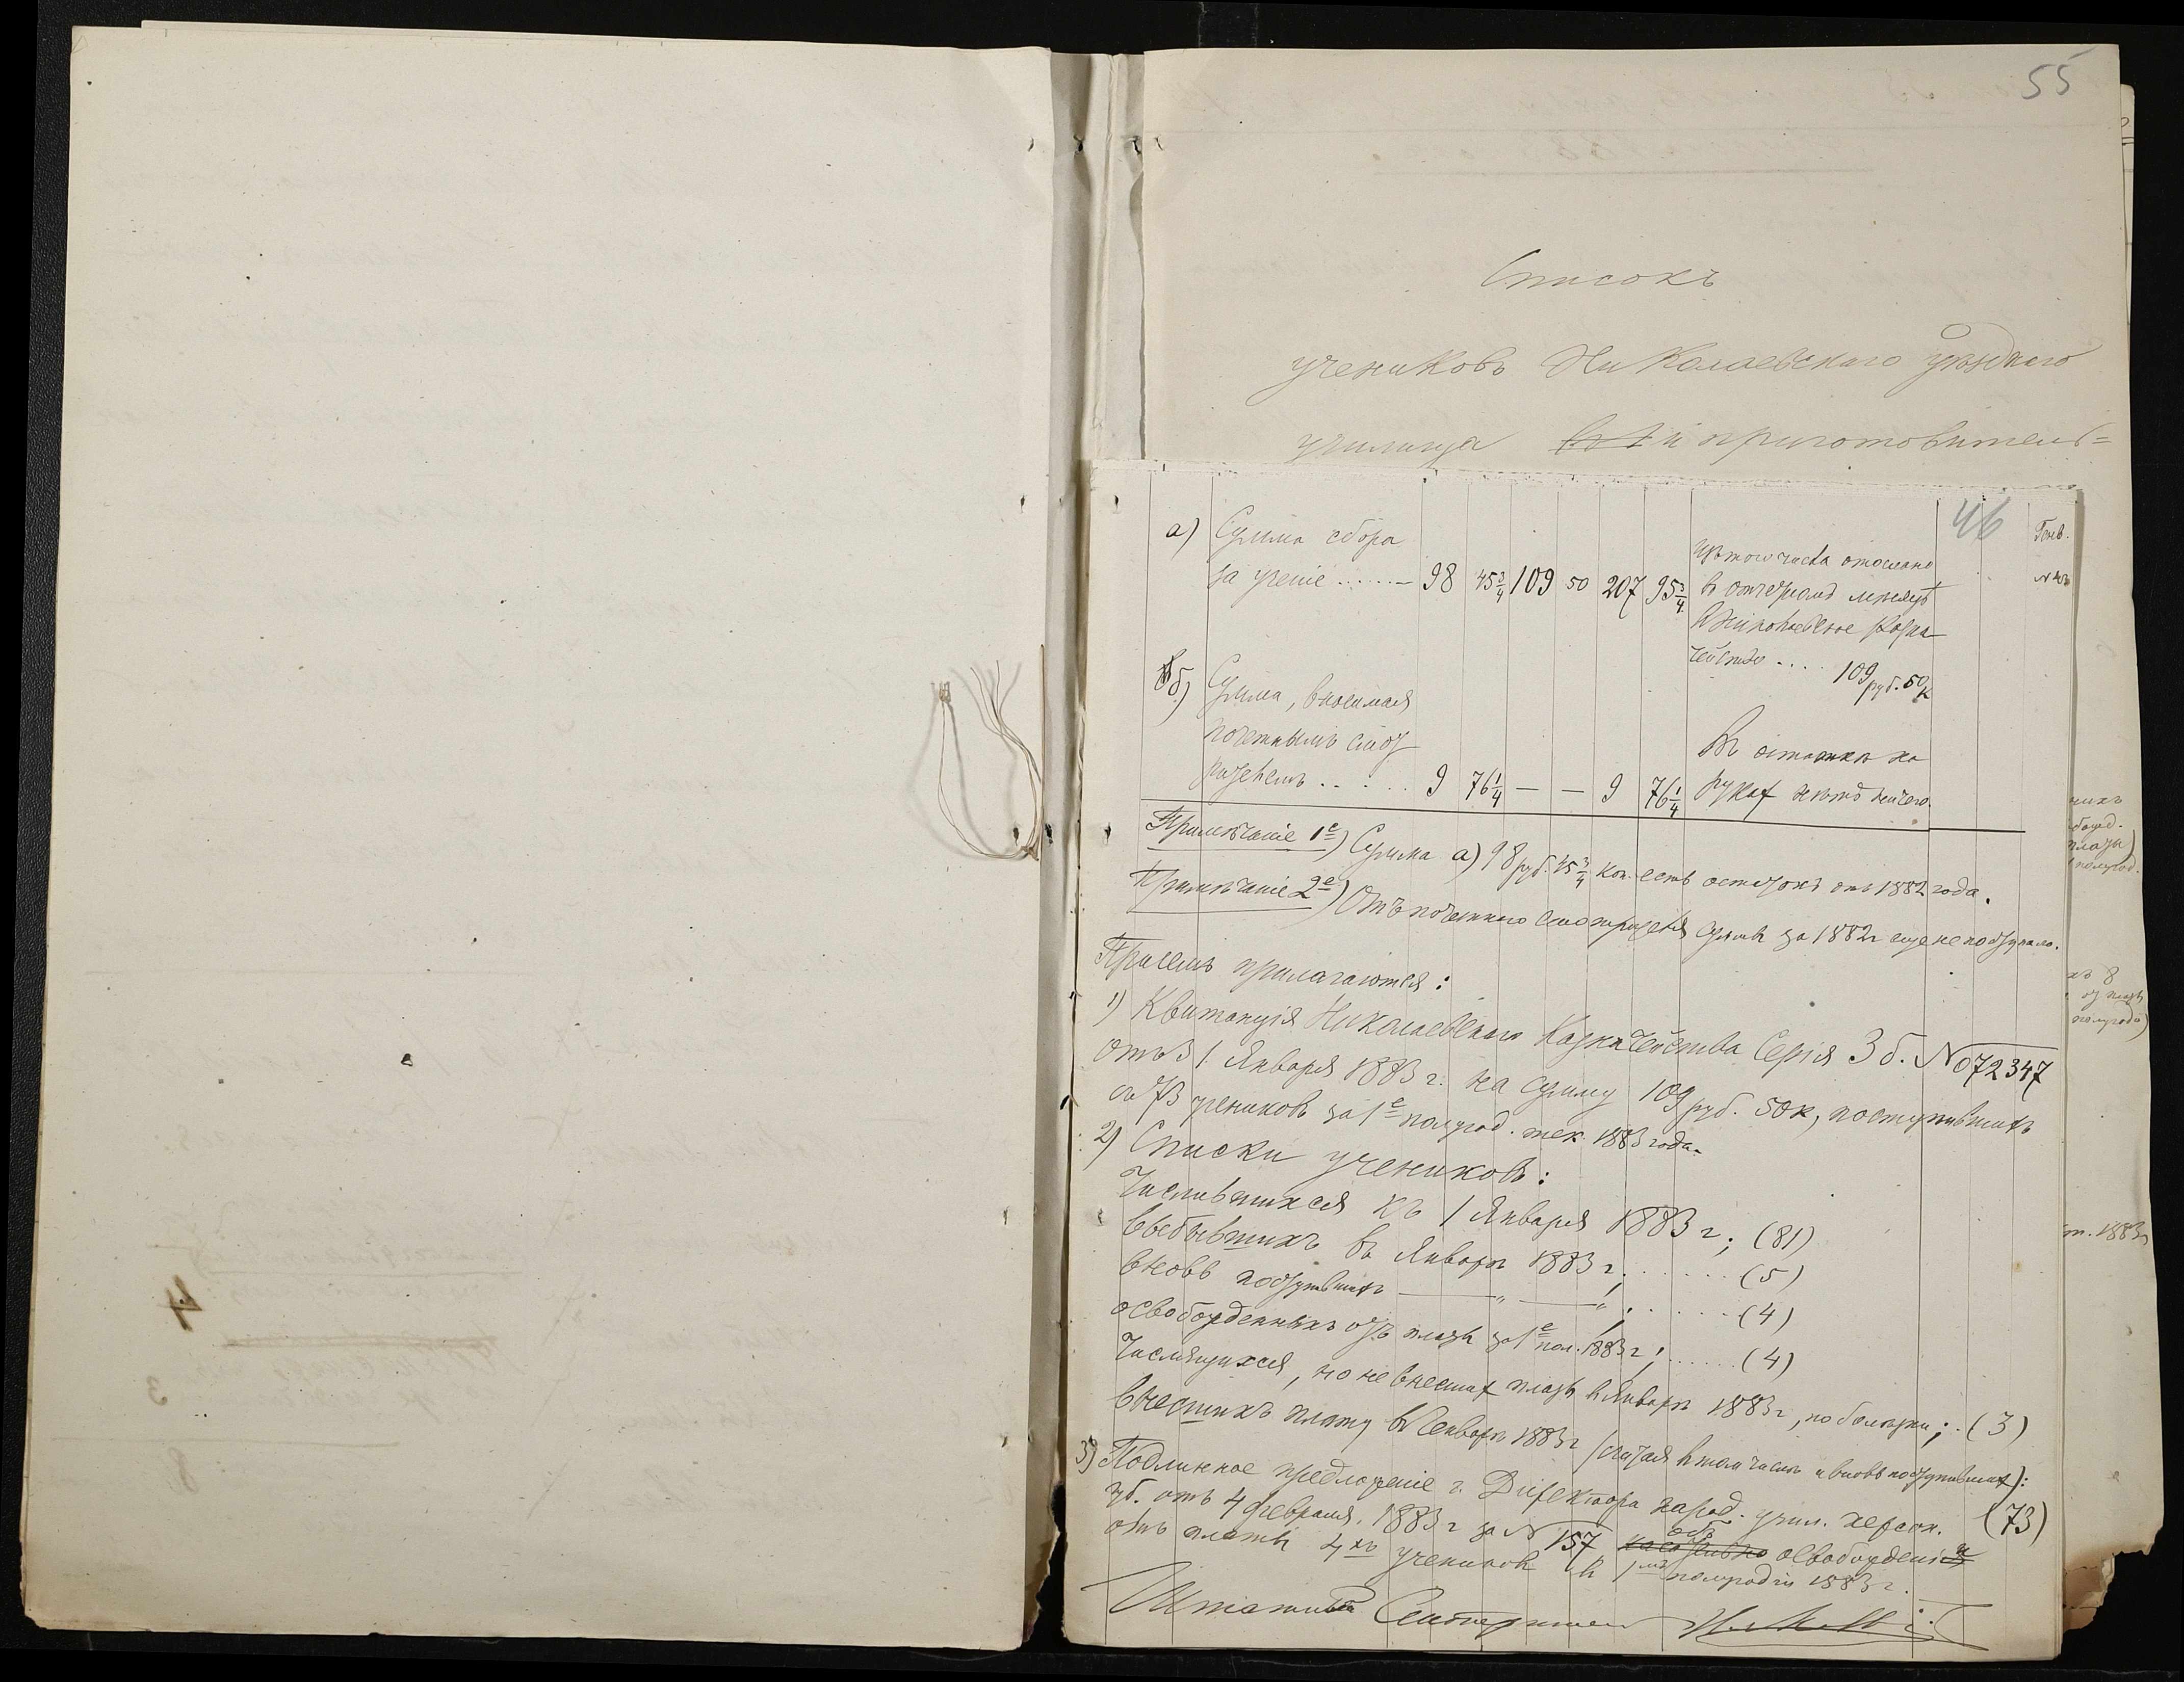 55
Списокъ
учениковъ Николаевскаго Уѣзднаго
училища въ 1й приготовитель=
46
Генв.
а) Сумма сбора
за ученіе ...... — 98 45 3/4 109 50 207 95 3/4
Изъ того числа отослано
въ отчетномъ мѣсяцѣ
въ Николаевское Казна
чейство .... 109 руб. 50 к
б) Сумма, вносимая
почетнымъ смот
рителемъ ..... 9 76 1/4 — — 9 76 1/4
Въ остаткѣ на
рукахъ нѣтъ ничего.
Примѣчаніе 1е) Сумма а) 98 руб. 45 3/4 коп. есть остатокъ отъ 1882 года.
Примѣчаніе 2е) Отъ почетнаго смотрителя сумма за 1882 г еще не поступала.
При семъ прилагаются:
1) Квитанція Николаевскаго Казначейства Серія 3 б. № 072347
отъ 31 Января 1883 г. на сумму 109 руб. 50 к, поступившихъ
съ 73 учениковъ за 1е полугод. тек. 1883 года.
2) Списки учениковъ:
Числившихся къ 1 Января 1883 г; (81)
выбывшихъ въ Январѣ 1883 г; ...... (5)
вновь поступившихъ — " — " ; ...... (4)
освобожденныхъ отъ платы за 1е пол. 1883 г; ...... (4)
Числящихся, но не внесшихъ платы въ Январѣ 1883 г, по болѣзни; . (3)
внесшихъ плату въ Январѣ 1883 г (считая въ томъ числѣ и вновь поступившихъ): (73)
3) Подлинное предложеніе г. Директора народ. учил. херсон.
губ. отъ 4 февраля 1883 г за № 157 объ освобожденіи
отъ платы 4хъ учениковъ въ 1мъ полугодіи 1883 г.
Штатный Смотритель
нихъ
платы)
полугод.
хъ 8
отъ платы
полугодія)
т. 1883 г
4
3
8